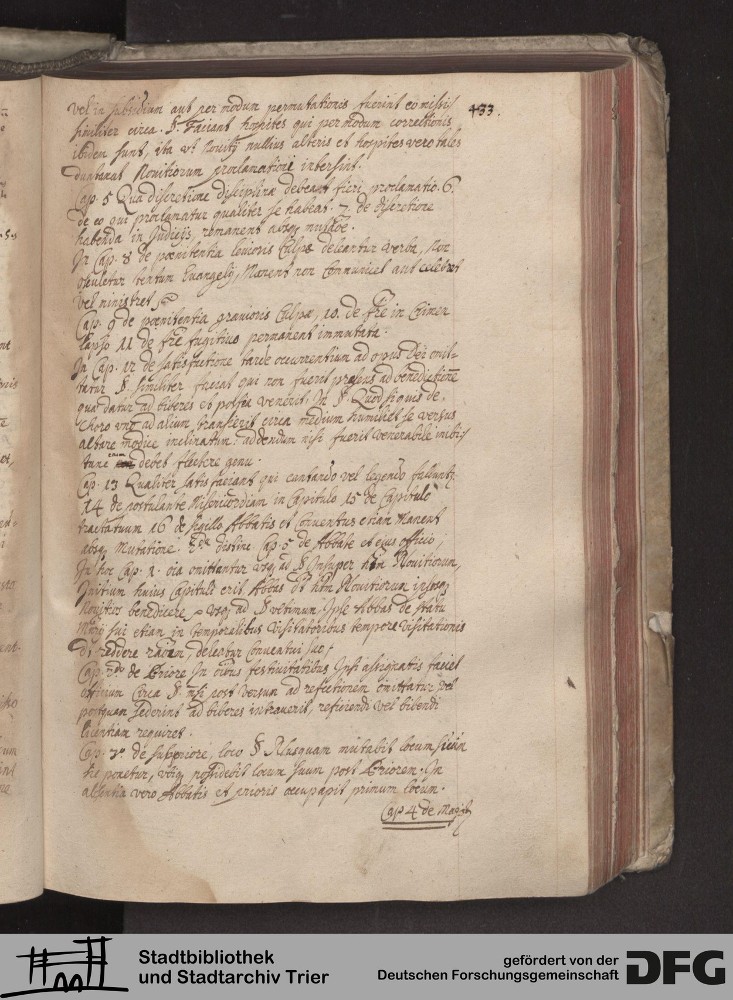 433.
vel in subsidium aut per modum permutationis fuerint emissi
similiter circa. §. Faciant hospites qui per modum correctionis
ibidem sunt, ita vt Nouitij nullius alterius et hospites vero tales
duntaxat Nouitiorum proclamationi intersint.
Cap. 5 Qua discretione disciplinæ debeant fieri, proclamatio. 6.
de eo qui proclamatur qualiter se habeat. 7. de discretione
habenda in Judicijs, remanent absq
In Cap. 8 de pœnitentia leuioris Culpæ deleantur verba, Non
osculetur textum Euangelij, Maneat non Communicet aut celebret
vel ministret
Cap. 9 de pœnitentia grauioris Culpæ, 10. de fr̃e in Crimen
lapso 11 de fr̃e fugitiuo permanent immutata.
In Cap. 12 de satisfactione tarde occurrentium ad opus Dei omit-
tatur §. similiter faciat qui non fuerit præsens ad benedictionẽ
quæ datur ad biberes et postea venerit. In §. Quod si quis de
Choro vno ad alium transierit circa medium humiliet se versus
altare modice inclinatum: addendum nisi fuerit venerabile in
tunc enim debet flectere genu.
Cap. 13 Qualiter satisfaciant qui cantando vel legendo falluntr.
14 de postulante Misericordiam in Capitulo 15 de Capitulo
tractatuum 16 de sigillo Abbatis et Conuentus etiam Manent
absq Mutatione. 2dæ distinc. Cap 5 de Abbate et eius officio,
In hoc Cap. 1. oia omittantur vsq ad § Insuper Nouitiorum,
Initium huius Capituli erit Abbas Nouitiorum
Nouitios benedicere vsq ad § vltimum. Ipse Abbas de statu
sui etiam in temporalibus Visitatoribus tempore visitationis
reddere raõem, deleatur Conuentui suo,
Cap. de Priore In oibus festiuitatibus sibi assignatis faciet
officium Circa §. nisi post versum ad refectionem omittatur vel
postquam sederint ad biberes intrauerit, reficiendi vel bibendi
licentiam requiret.
Cap. 3. de suppriore, loco § Nusquam mutabit locum
ponetur, vbiq possidebit locum suum post Priorem. In
absentia vero Abbatis et prioris occupabit primum locum.
Cap 4 de Magist
Stadtbibliothek
und Stadtarchiv Trier
gefördert von der
Deutschen Forschungsgemeinschaft
DFG